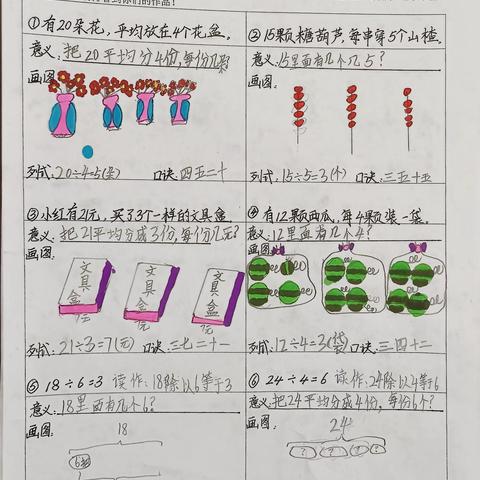 看到你们的作品!
①有20朵花,平均放在4个花盆。
意义:把20平均分4份,每份几朵?
画图:
列式:20÷4=5(朵) 口诀:四五二十
②15颗糖葫芦,每串穿5个山楂。
意义:15里面有几个几5?
画图:
列式:15÷5=3(个) 口诀:三五十五
③小红有21元,买了3个一样的文具盒
意义:把21平均分成3份,每份几元?
画图:
文具盒
文具盒
文具盒
列式:21÷3=7(元) 口诀:三七二十一
④有12颗西瓜,每4颗装一袋。
意义:12里面有几个4?
画图:
列式:12÷4=3(袋) 口诀:三四十二
⑤18÷6=3 读作:18除以6等于3
意义:18里面有几个6?
画图:
18
⑥24÷4=6 读作:24除以4等于6
意义:把24平均分成4份,每份6个?
画图:
24
? ? ? ?